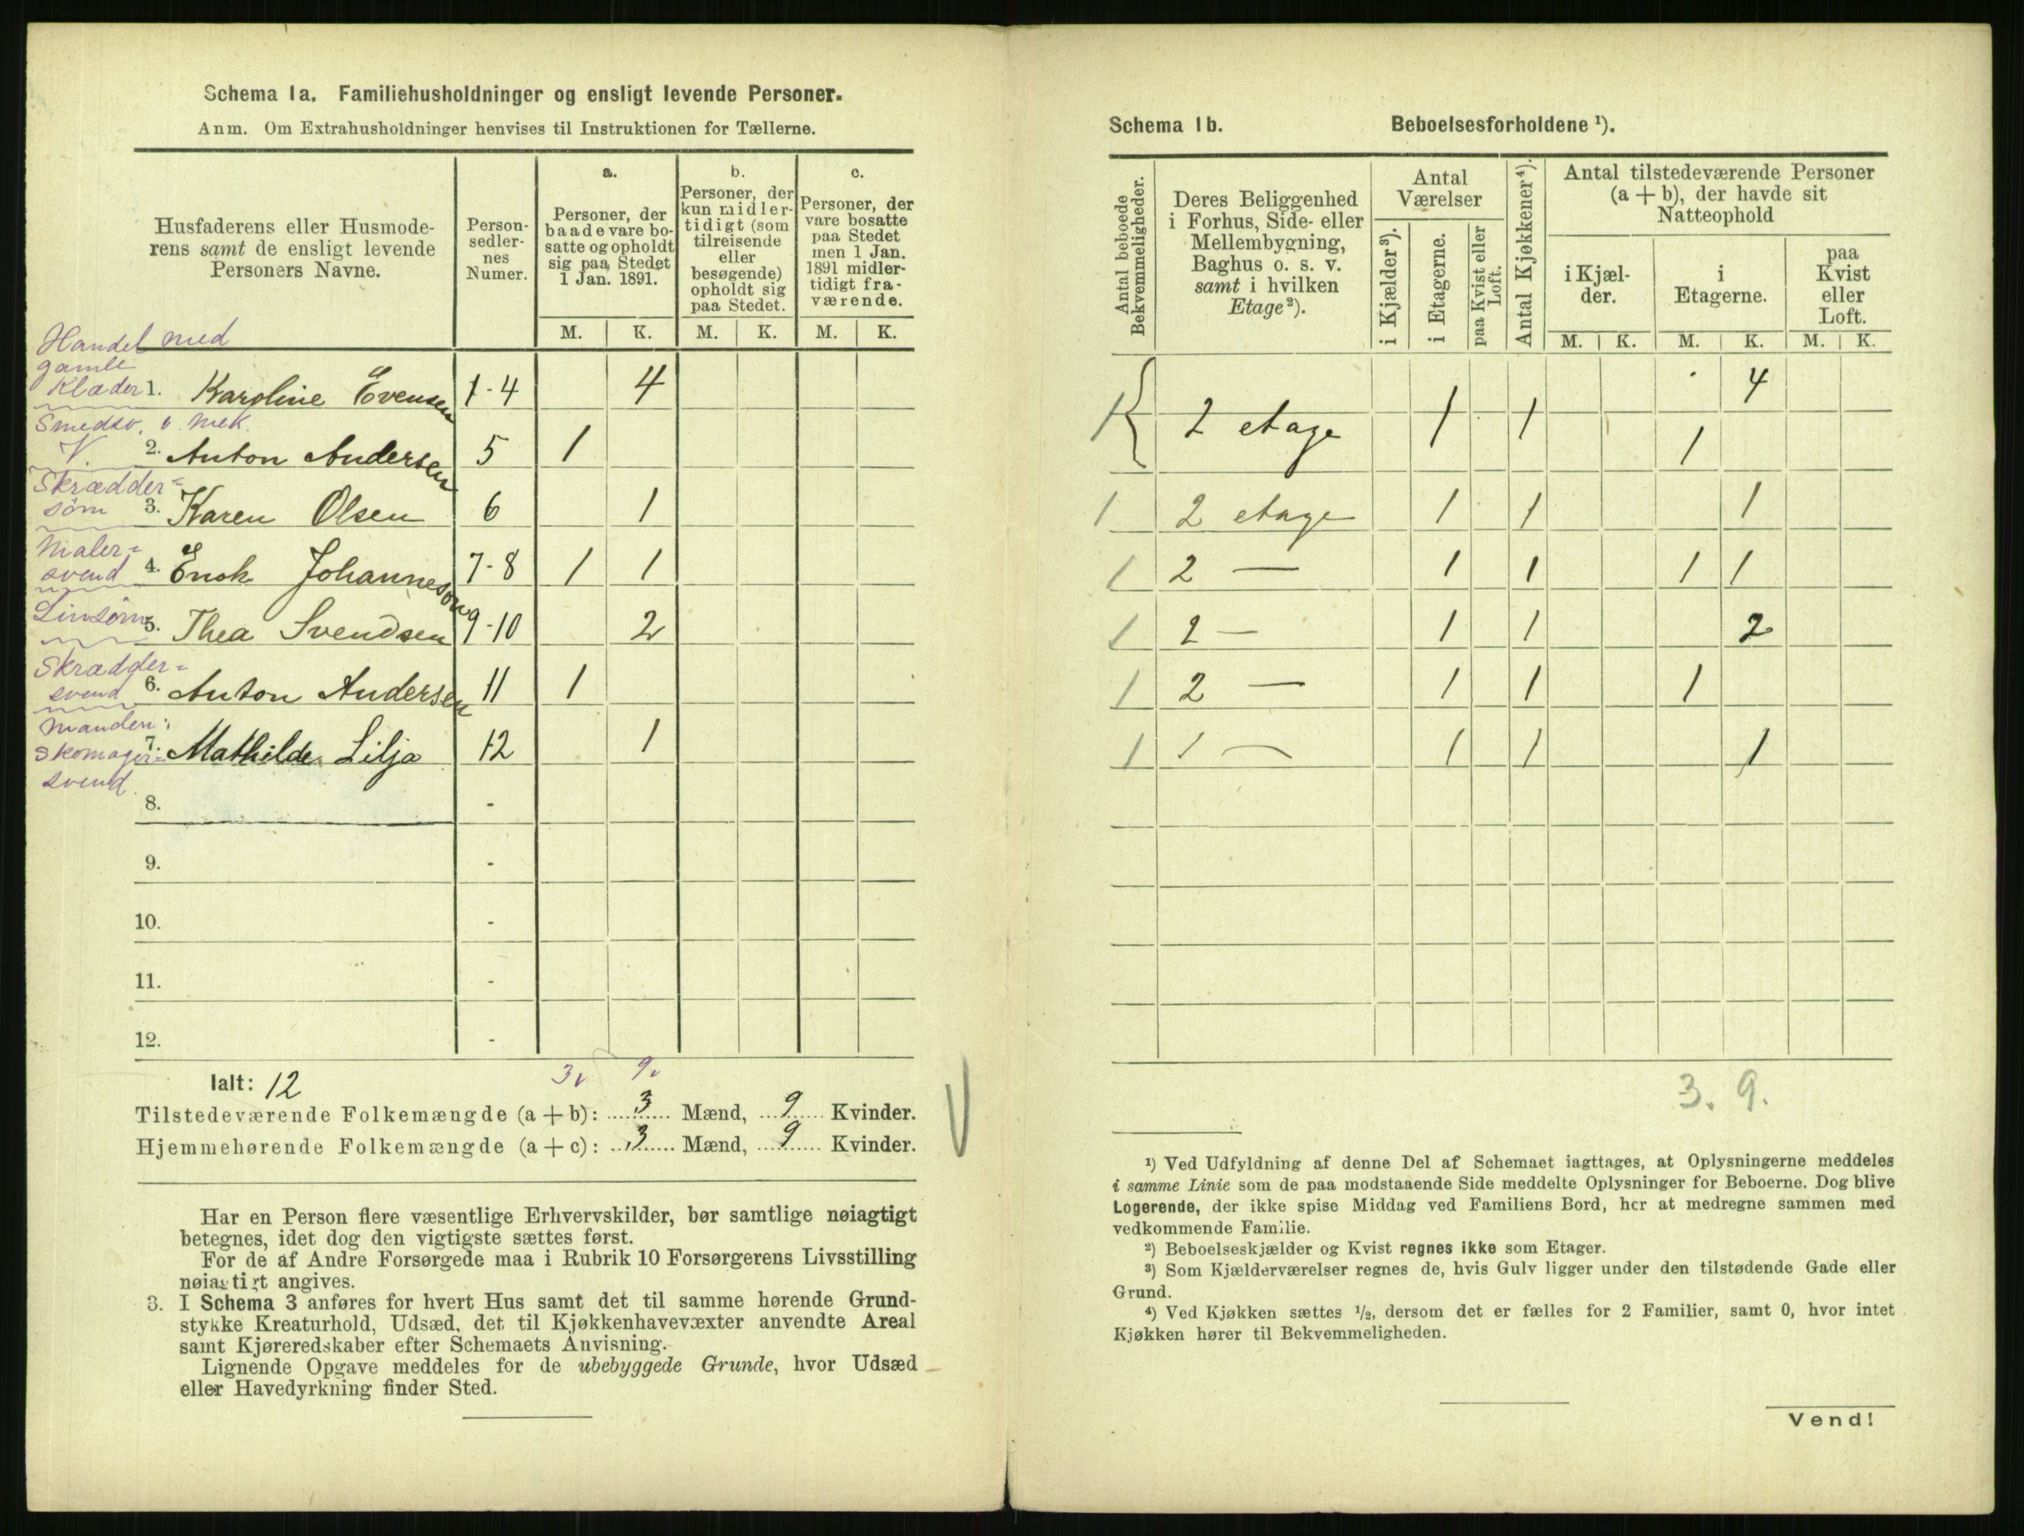 Schema 1a. Familiehusholdninger og ensligt levende Personer.
Anm. Om Extrahusholdninger henvises til Instruktionen for Tællerne.
Husfaderens eller Husmode-
rens samt de ensligt levende
Personers Navne.
Person-
sedler-
nes
Numer.
a.
Personer, der
baade vare bo-
satte og opholdt
sig paa Stedet
1 Jan. 1891.
b.
Personer, der
kun midler-
tidigt (som
tilreisende
eller
besøgende)
opholdt sig
paa Stedet.
c.
Personer, der
vare bosatte
paa Stedet
men 1 Jan.
1891 midler-
tidigt fra-
værende.
M. K. M. K. M. K.
Handel med
gamle
Klæder 1. Karoline Evensen 1-4 4
Smedsv. o. mek.
V. 2. Anton Andersen 5 1
Skrædder=
söm 3. Karen Olsen 6 1
Maler=
svend 4. Enok Johannesen 7-8 1 1
Linsöm 5. Thea Svendsen 9-10 2
Skrædder=
svend 6. Anton Andersen 11 1
Manden:
Skomager= 7. Mathilde Lilja 12 1
svend
8. -
9. -
10. -
11. -
12. -
3v 9v
Ialt: 12
Tilstedeværende Folkemængde (a + b): 3 Mænd, 9 Kvinder.
Hjemmehørende Folkemængde (a + c): 3 Mænd, 9 Kvinder.
Har en Person flere væsentlige Erhvervskilder, bør samtlige nøiagtigt
betegnes, idet dog den vigtigste sættes først.
For de af Andre Forsørgede maa i Rubrik 10 Forsørgerens Livsstilling
nøiagtigt angives.
3. I Schema 3 anføres for hvert Hus samt det til samme hørende Grund-
stykke Kreaturhold, Udsæd, det til Kjøkkenhavevæxter anvendte Areal
samt Kjøreredskaber efter Schemaets Anvisning.
Lignende Opgave meddeles for de ubebyggede Grunde, hvor Udsæd
eller Havedyrkning finder Sted.
Schema 1b. Beboelsesforholdene ¹).
Antal beboede
Bekvemmeligheder.
Deres Beliggenhed
i Forhus, Side- eller
Mellembygning,
Baghus o. s. v.
samt i hvilken
Etage²).
Antal
Værelser
i Kjælder³).
i Etagerne.
paa Kvist eller
Loft.
Antal Kjøkkener⁴).
Antal tilstedeværende Personer
(a + b), der havde sit
Natteophold
i Kjæl-
der.
i
Etagerne.
paa
Kvist
eller
Loft.
M. K. M. K. M. K.
4
1 { 2 etage 1 1
1
1 2 etage 1 1 1
1 2 — 1 1 1 1
1 2 — 1 1 2
1 2 — 1 1 1
1 1 — 1 1 1
3. 9.
¹) Ved Udfyldning af denne Del af Schemaet iagttages, at Oplysningerne meddeles
i samme Linie som de paa modstaaende Side meddelte Oplysninger for Beboerne. Dog blive
Logerende, der ikke spise Middag ved Familiens Bord, her at medregne sammen med
vedkommende Familie.
²) Beboelseskjælder og Kvist regnes ikke som Etager.
³) Som Kjælderværelser regnes de, hvis Gulv ligger under den tilstødende Gade eller
Grund.
⁴) Ved Kjøkken sættes 1/2, dersom det er fælles for 2 Familier, samt 0, hvor intet
Kjøkken hører til Bekvemmeligheden.
Vend!